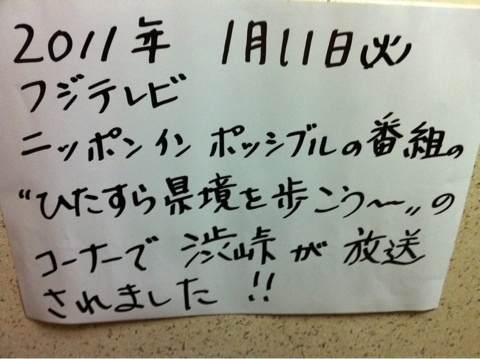 2011年 1月11日㈫
フジテレビ
ニッポンインポッシブルの番組の
“ひたすら県境を歩こう〜”の
コーナーで 渋峠が 放送
されました!!